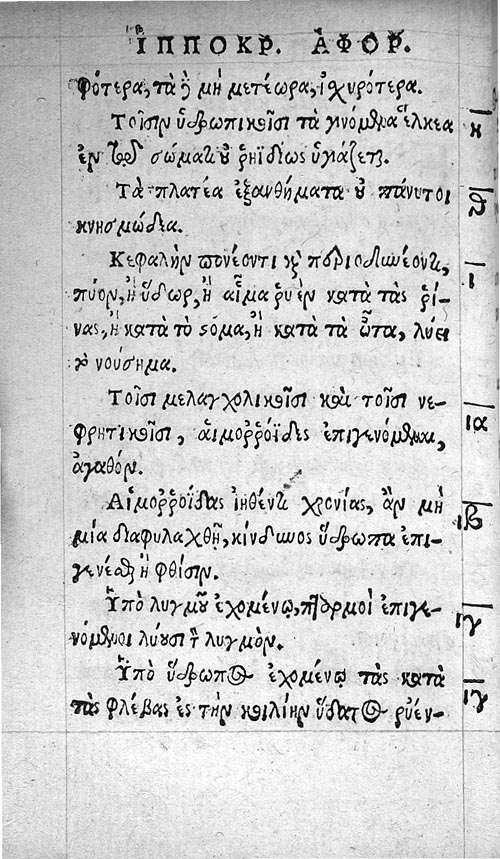 ἹΠΠΟΚΡ. ἈΦΟΡ.
φότερα, τὰ δὲ μὴ μετέωρα, ἰσχυρότερα.
Τοῖσιν ὑδρωπικοῖσι τὰ γινόμενα ἕλκεα η
ἐν τῷ σώματι οὐ ῥηϊδίως ὑγιάζεται.
Τὰ πλατέα ἐξανθήματα οὐ πάνυ τοι θ
κνησμώδεα.
Κεφαλὴν πονέοντι καὶ περιοδυνέοντι, ι
πύον, ἢ ὕδωρ, ἢ αἷμα ῥυὲν κατὰ τὰς ῥῖ-
νας, ἢ κατὰ τὸ στόμα, ἢ κατὰ τὰ ὦτα, λύει
τὸ νούσημα.
Τοῖσι μελαγχολικοῖσι καὶ τοῖσι νε- ια
φρητικοῖσι, αἱμοῤῥοΐδες ἐπιγενόμεναι,
ἀγαθόν.
Αἱμοῤῥοΐδας ἰηθέντι χρονίας, ἂν μὴ ιβ
μία διαφυλαχθῇ, κίνδυνος ὕδρωπα ἐπι-
γενέσθαι ἢ φθίσιν.
Ὑπὸ λυγμοῦ ἐχομένῳ, πταρμοὶ ἐπιγε- ιγ
νόμενοι λύουσι τὸν λυγμὸν.
Ὑπὸ ὕδρωπος ἐχομένῳ τὰς κατὰ ιδ
τὰς φλέβας ἐς τὴν κοιλίην ὕδατος ῥυέν-